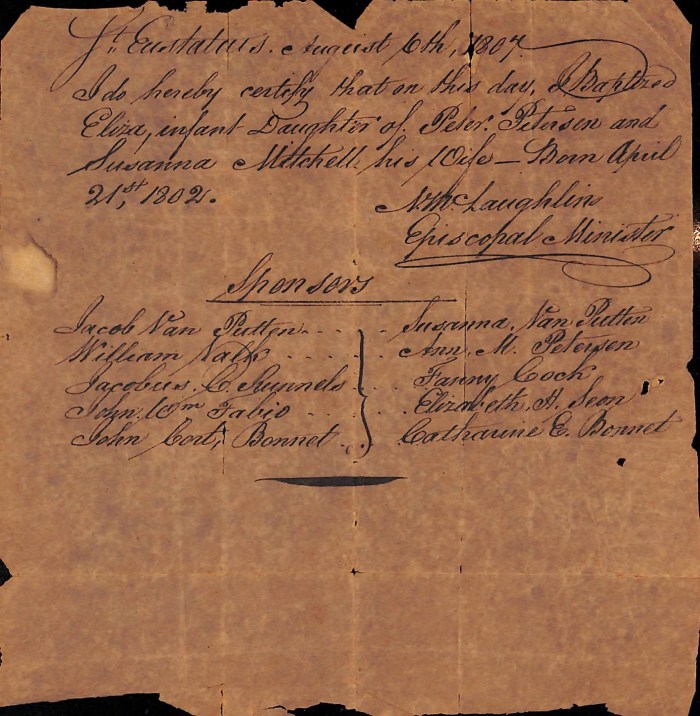 St. Eustatius. August 6th, 1807.
I do hereby certify that on this day, I Baptized
Eliza, infant Daughter of Peter Petersen and
Susanna Mitchell his Wife – Born April
21st, 1802.
N. Mc Laughlin
Episcopal Minister
Sponsors
Jacob Van Putten Susanna Van Putten
William Ann M. Petersen
Jacobus C. Runnels Fanny Cock
John Wm Fabio Elizabeth H. Seon
John Cort, Bonnet Catharine E. Bonnet